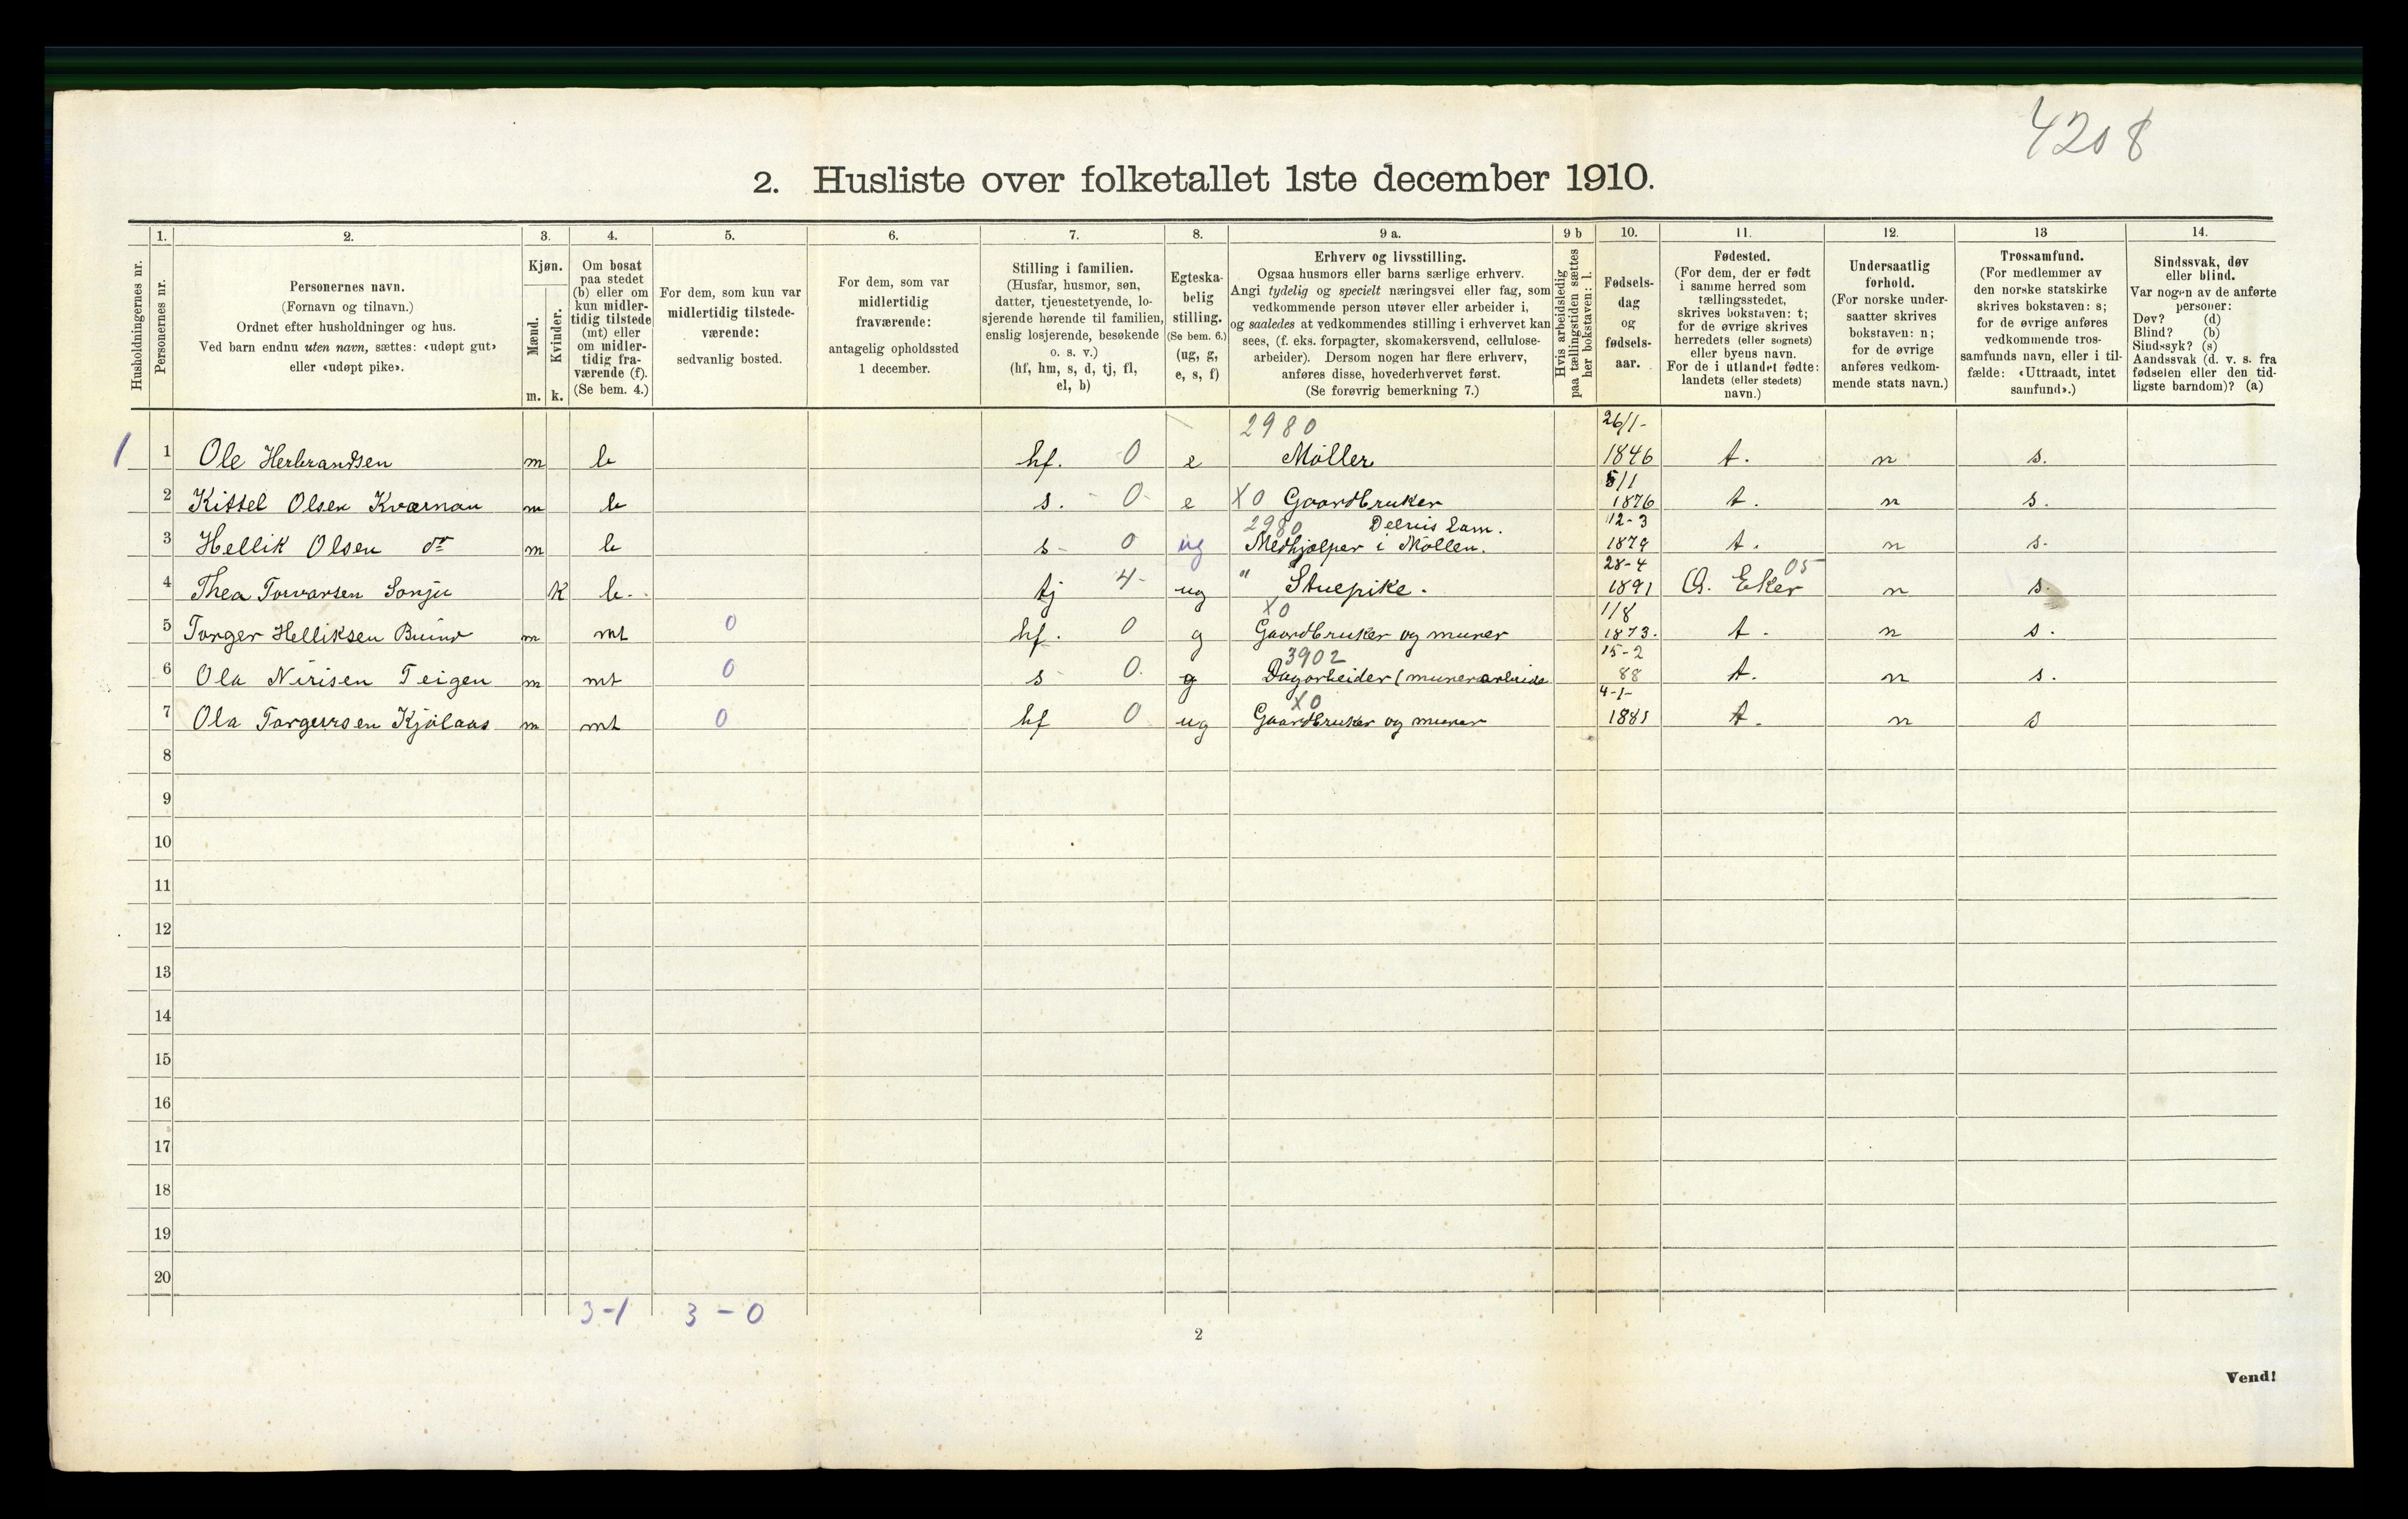 4208
2. Husliste over folketallet 1ste december 1910.
Husholdningernes nr.
1.
Personernes nr.
2.
Personernes navn.
(Fornavn og tilnavn.)
Ordnet efter husholdninger og hus.
Ved barn endnu uten navn, sættes: «udøpt gut»
eller «udøpt pike».
3.
Kjøn.
Mænd.
Kvinder.
m. k.
4.
Om bosat
paa stedet
(b) eller om
kun midler-
tidig tilstede
(mt) eller
om midler-
tidig fra-
værende (f).
(Se bem. 4.)
5.
For dem, som kun var
midlertidig tilstede-
værende:
sedvanlig bosted.
6.
For dem, som var
midlertidig
fraværende:
antagelig opholdssted
1 december.
7.
Stilling i familien.
(Husfar, husmor, søn,
datter, tjenestetyende, lo-
sjerende hørende til familien,
enslig losjerende, besøkende
o. s. v.)
(hf, hm, s, d, tj, fl,
el, b)
8.
Egteska-
belig
stilling.
(Se bem. 6.)
(ug, g,
e, s, f)
9 a.
Erhverv og livsstilling.
Ogsaa husmors eller barns særlige erhverv.
Angi tydelig og specielt næringsvei eller fag, som
vedkommende person utøver eller arbeider i,
og saaledes at vedkommendes stilling i erhvervet kan
sees, (f. eks. forpagter, skomakersvend, cellulose-
arbeider). Dersom nogen har flere erhverv,
anføres disse, hovederhvervet først.
(Se forøvrig bemerkning 7.)
9 b
Hvis arbeidsledig
paa tællingstiden sættes
her bokstaven: l.
10.
Fødsels-
dag
og
fødsels-
aar.
11.
Fødested.
(For dem, der er født
i samme herred som
tællingsstedet,
skrives bokstaven: t;
for de øvrige skrives
herredets (eller sognets)
eller byens navn.
For de i utlandet fødte:
landets (eller stedets)
navn.)
12.
Undersaatlig
forhold.
(For norske under-
saatter skrives
bokstaven: n;
for de øvrige
anføres vedkom-
mende stats navn.)
13
Trossamfund.
(For medlemmer av
den norske statskirke
skrives bokstaven: s;
for de øvrige anføres
vedkommende tros-
samfunds navn, eller i til-
fælde: «Uttraadt, intet
samfund».)
14.
Sindssvak, døv
eller blind.
Var nogen av de anførte
personer:
Døv? (d)
Blind? (b)
Sindssyk? (s)
Aandssvak (d. v. s. fra
fødselen eller den tid-
ligste barndom)? (a)
2980 26/1-
1 1 Ole Herbrandsen m b hf. 0 e Møller 1846 t. n s.
5/1
2 Kittel Olsen Kværnan m b s. 0 e X0 Gaardbruker 1876 t. n s.
2980 Delvis Lam. 12-3
3 Hellik Olsen do m b s 0 ug Medhjælper i Møllen. 1879 t. n s.
28-4 05
4 Thea Torvarsen Sonju K b. tj 4- ug " Stuepike. 1891 Ø. Eker n s.
X0 1/8
5 Torger Helliksen m mt 0 hf. 0 g Gaardbruker og murer 1873. t. n s.
3902 15-2
6 Ola Nirisen Teigen m mt 0 s 0. g Dagarbeider (murerarbeide 88 t. n s.
X0 4-1-
7 Ola Torgersen Kjølaas m mt 0 hf 0 ug Gaardbruker og murer 1881 t. n s
8
9
10
11
12
13
14
15
16
17
18
19
20
3-1 3-0
2
Vend!